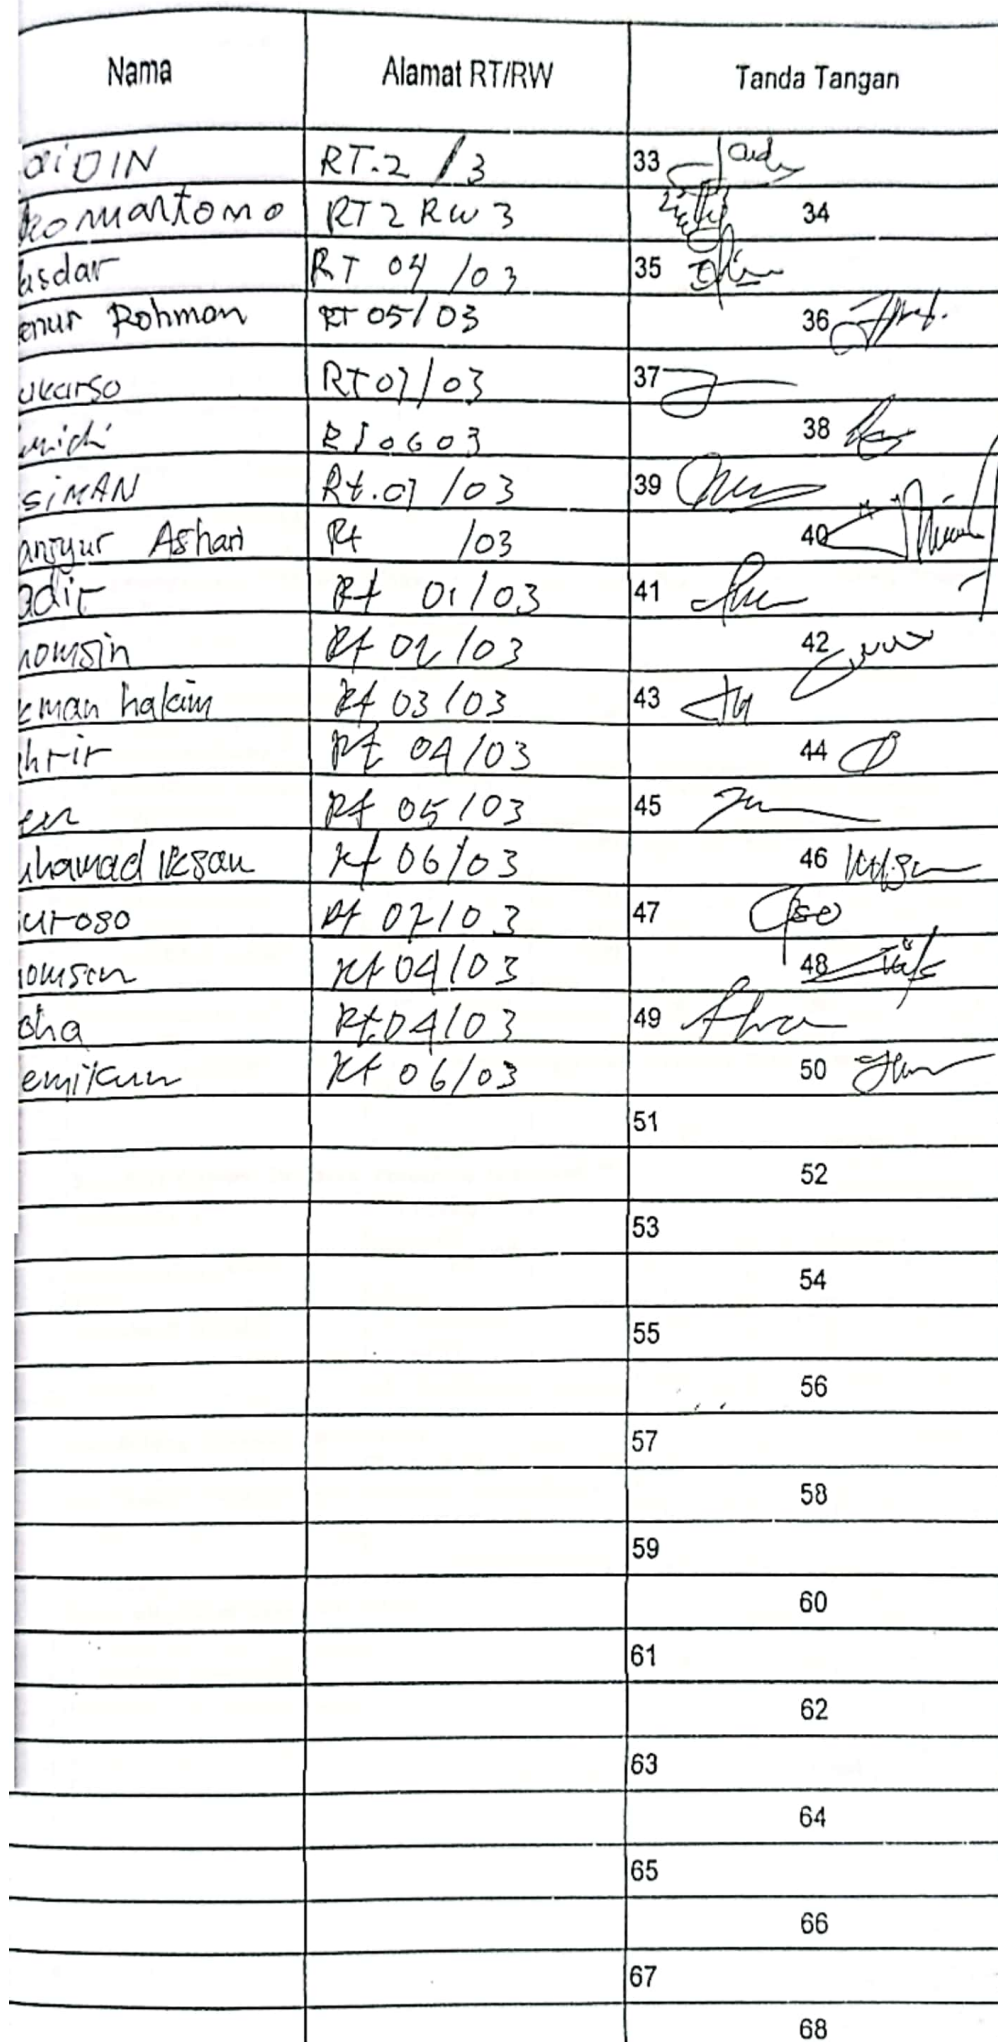 Nama Alamat RT/RW Tanda Tangan
aiDIN RT.2 / 3 33
komartomo RT 2 RW 3 34
asdar RT 04 /03 35
enur Rohman RT 05/03 36
ukarso RT 07/03 37
RT 06 03 38
SiMAN Rt.07 /03 39
ansyur Ashari Rt /03 40
adir Rt 01/03 41
homsin Rt 02/03 42
kman hakim Rt 03/03 43
hrir Rt 04/03 44
Rt 05/03 45
uhamad Iksan Rt 06/03 46
uroso Rt 07/03 47
homsan Rt 04/03 48
oha Rt.04/03 49
emikun Rt 06/03 50
51
52
53
54
55
56
57
58
59
60
61
62
63
64
65
66
67
68